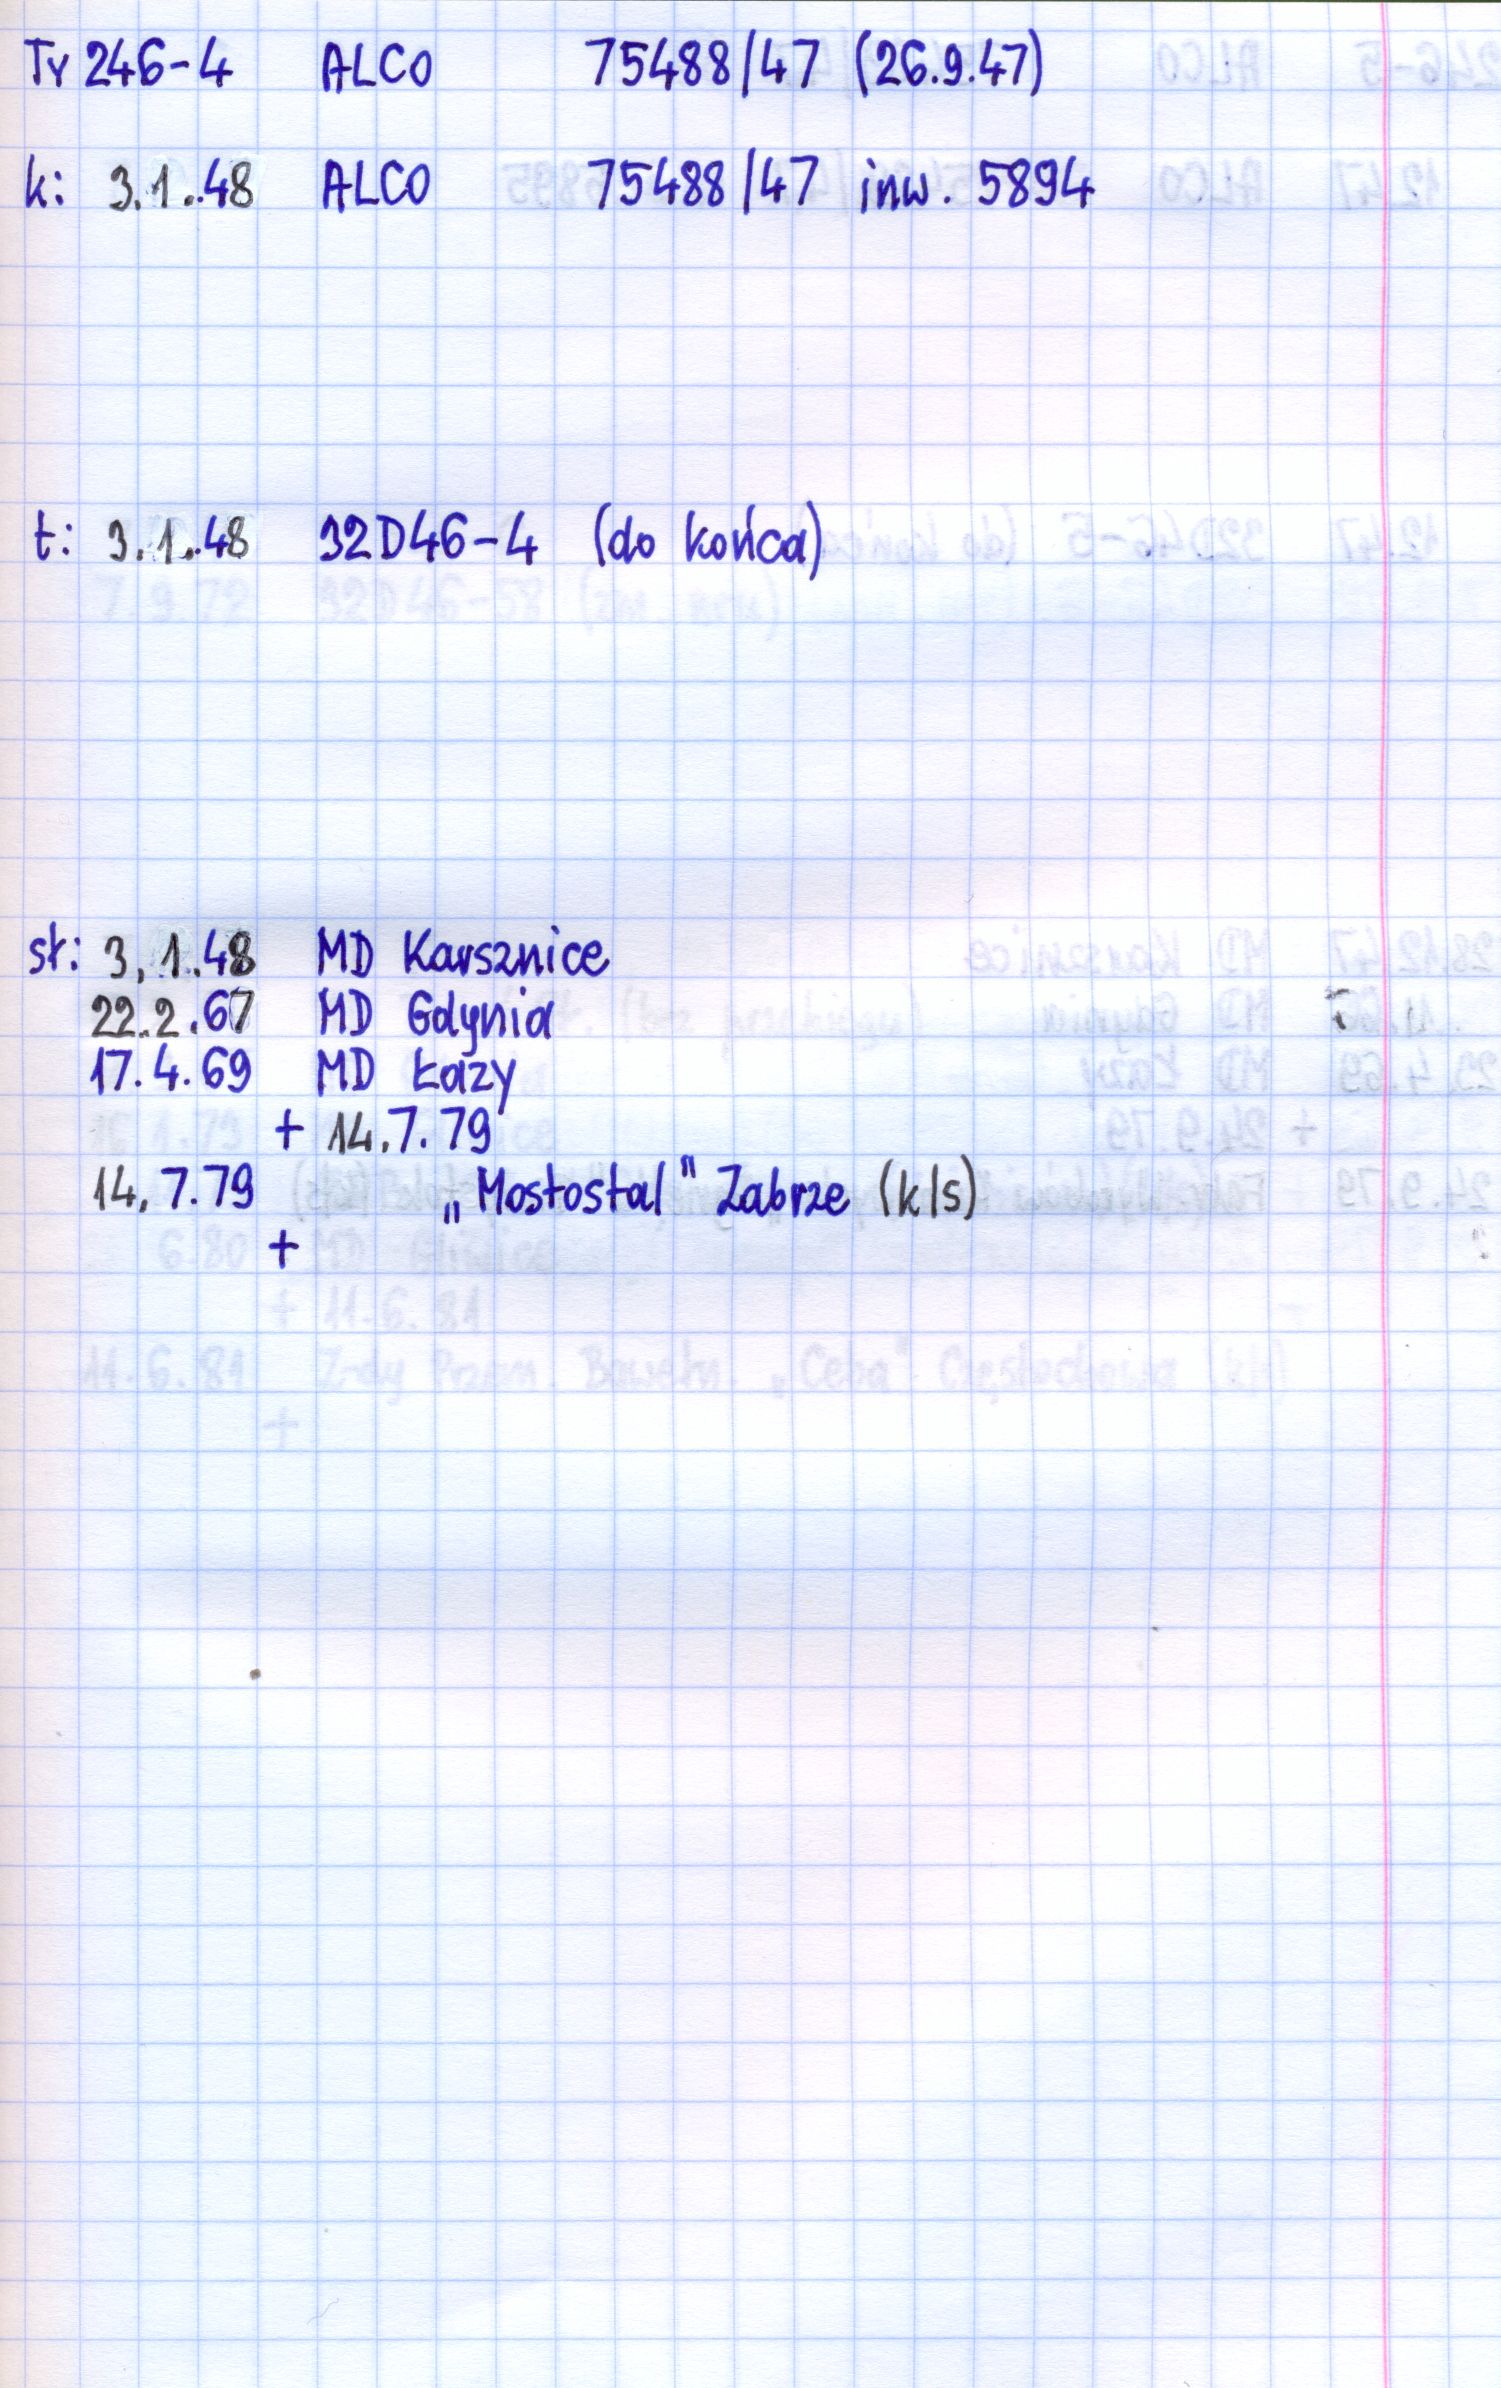 Ty 246-4 ALCO 75488/47 (26.9.47)
k: 3.1.48 ALCO 75488/47 inw. 5894
t: 3.1.48 32D46-4 (do końca)
st: 3.1.48 MD Karsznice
22.2.67 MD Gdynia
17.4.69 MD Łazy
+ 14.7.79
14.7.79 „Mostostal" Zabrze (k/s)
+